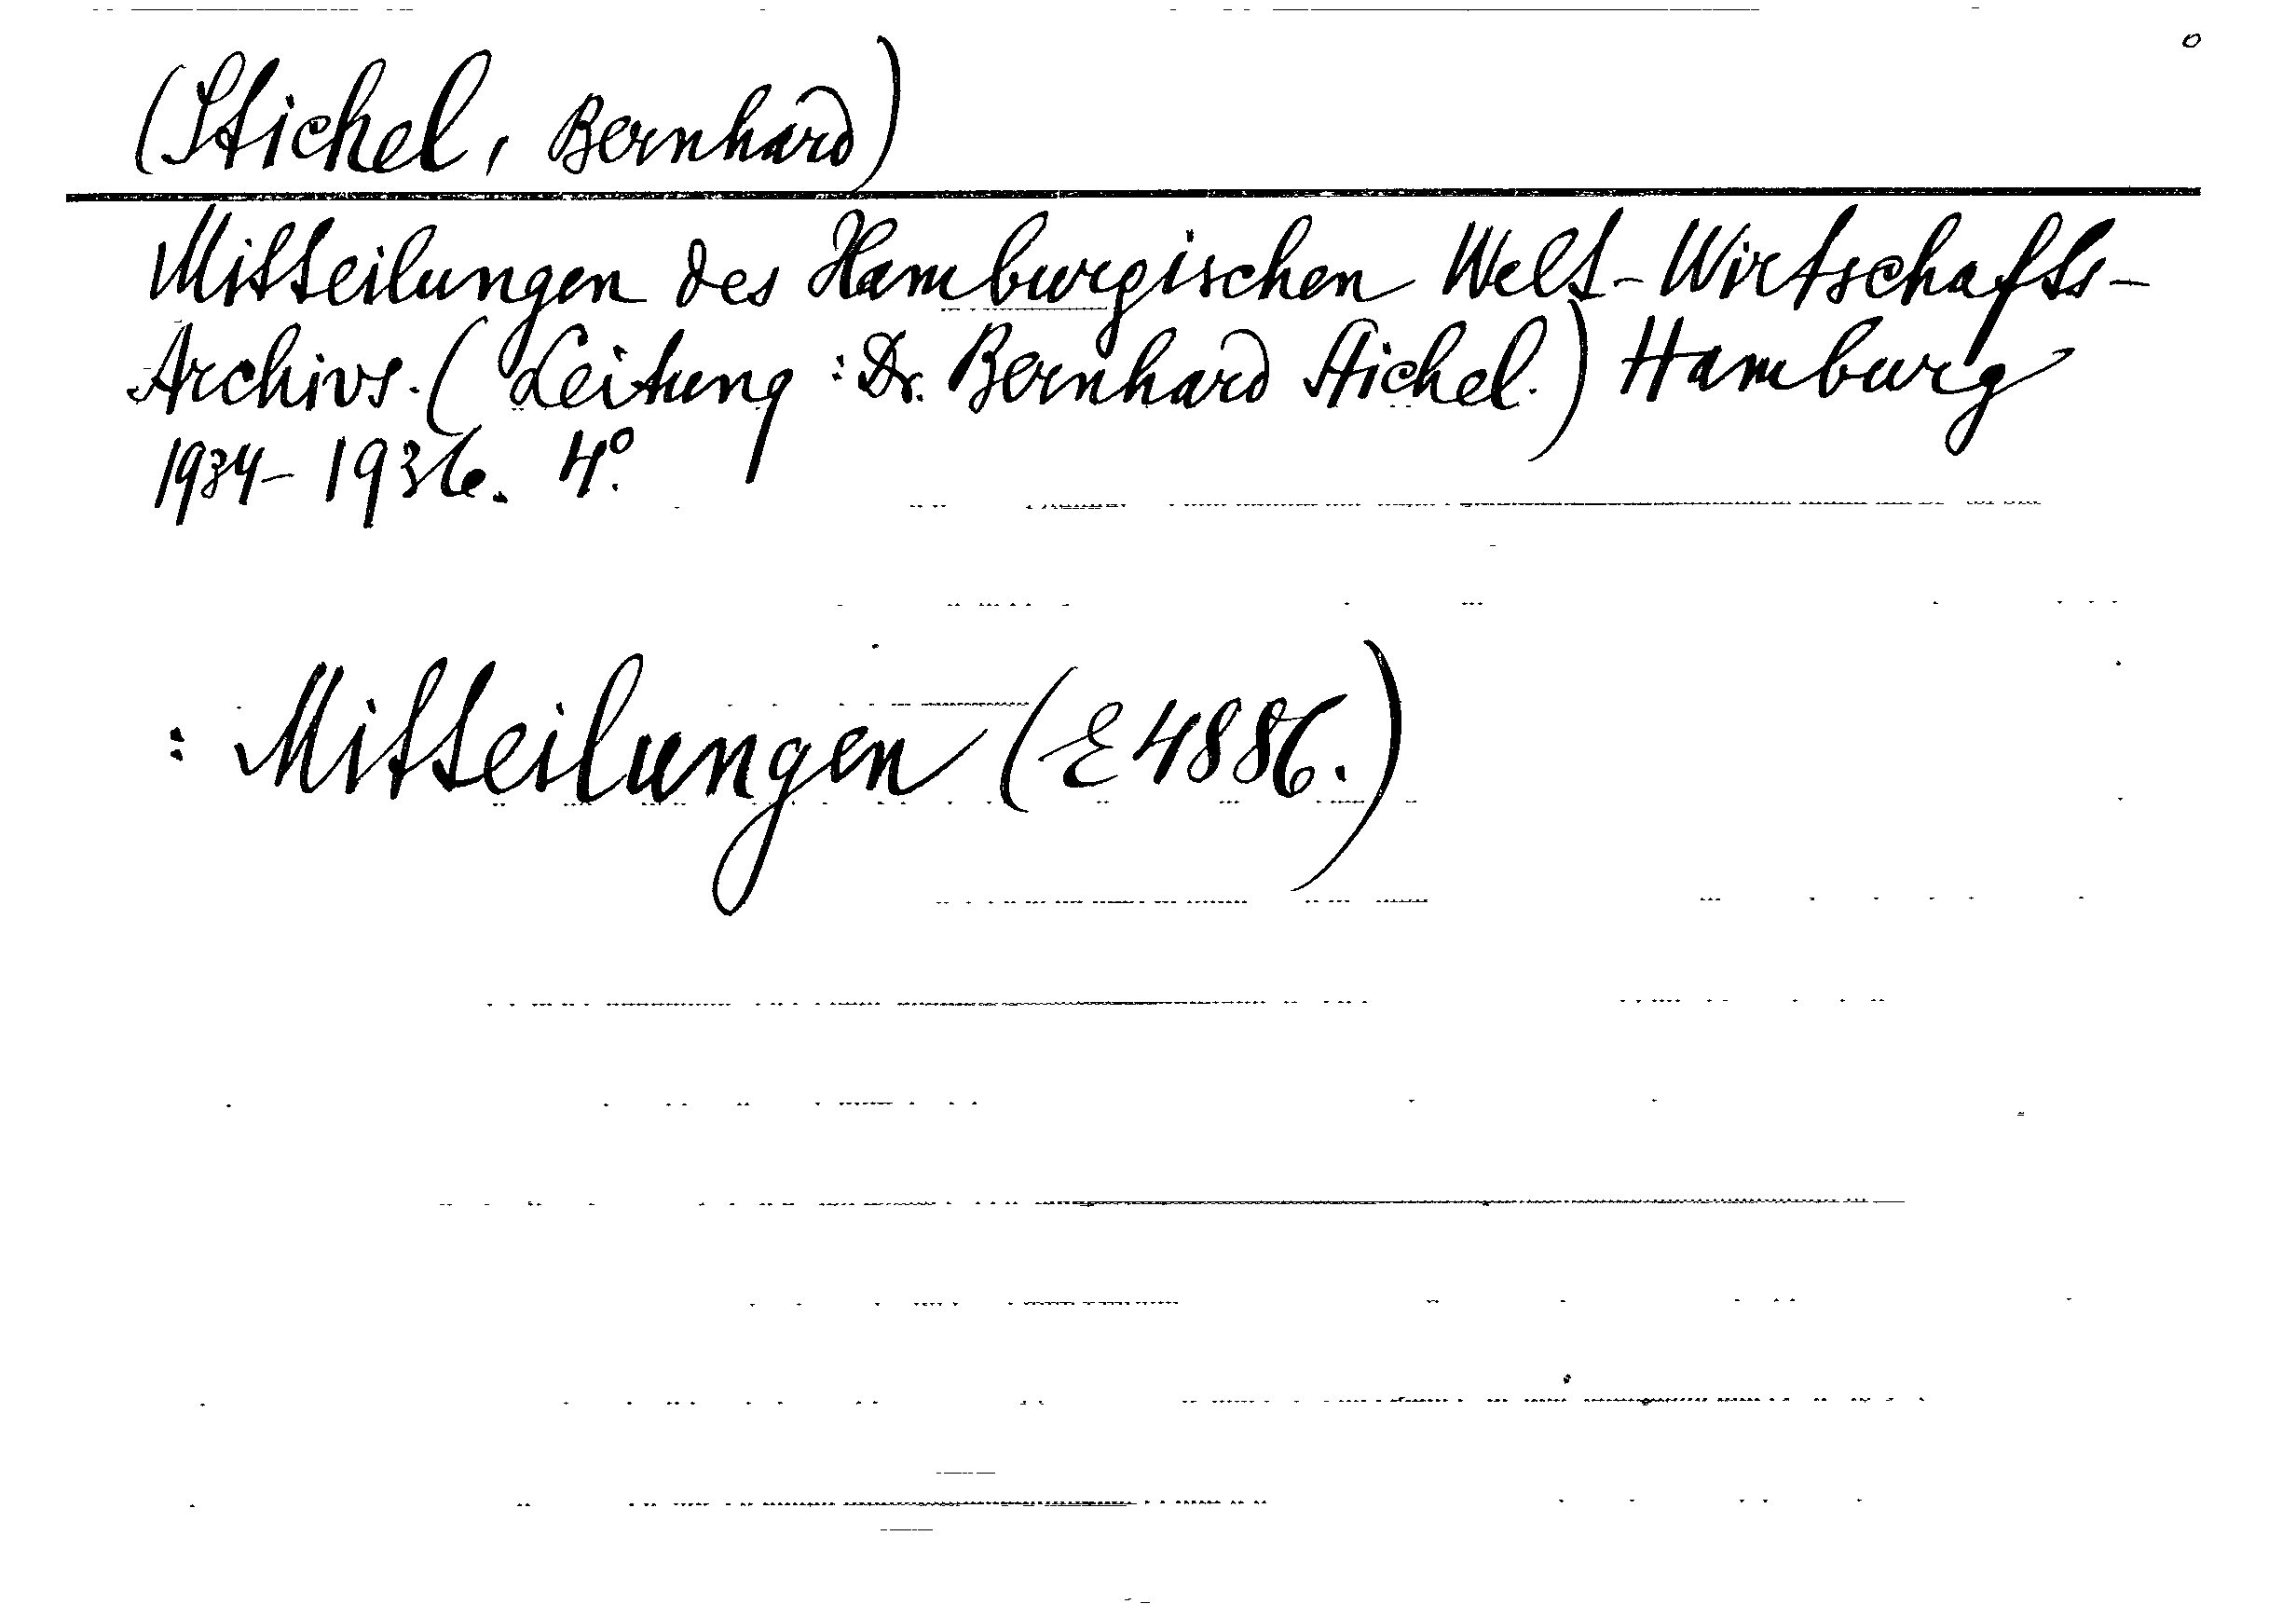 (Stichel, Bernhard)
Mitteilungen des Hamburgischen Welt-Wirtschafts-
Archivs. (Leitung: Dr. Bernhard Stichel.) Hamburg
1934-1936. 4°.
: Mitteilungen (E 4886.)